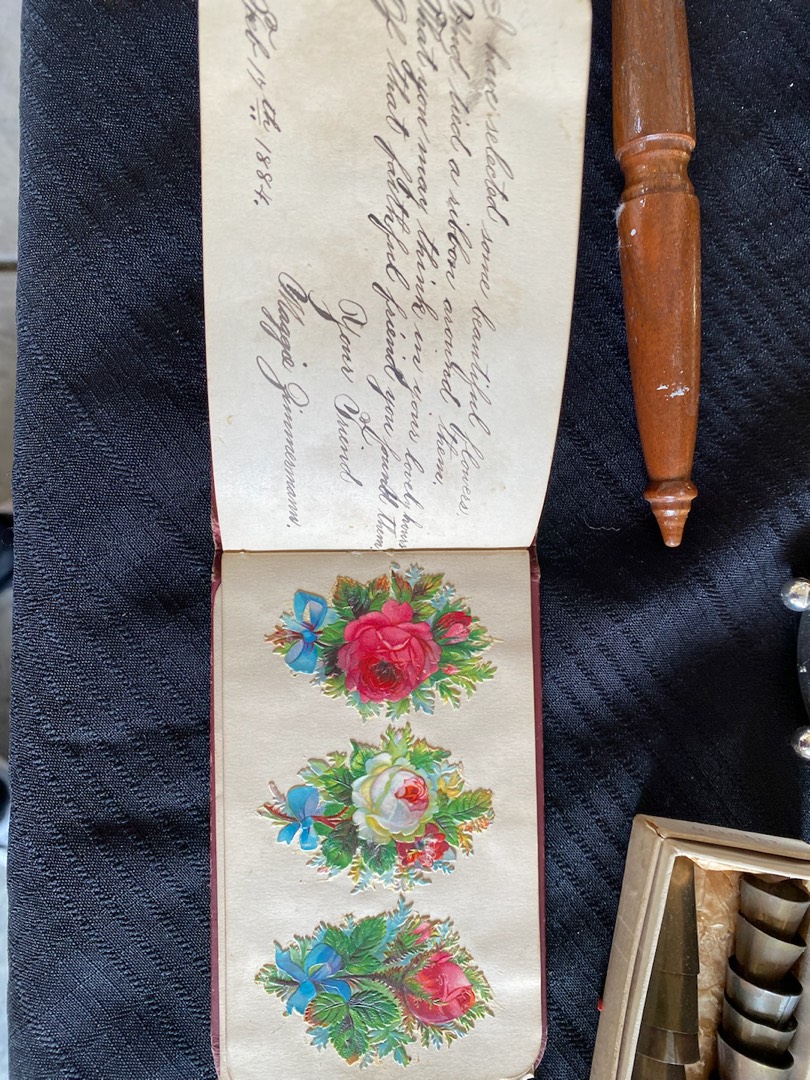 I have selected some beautiful flowers,
And tied a ribbon around them,
That you may think in your lovely hours
Of that faithful friend you found them.
Your Friend
Maggie Zimmermann.
Feb 17th 1884.